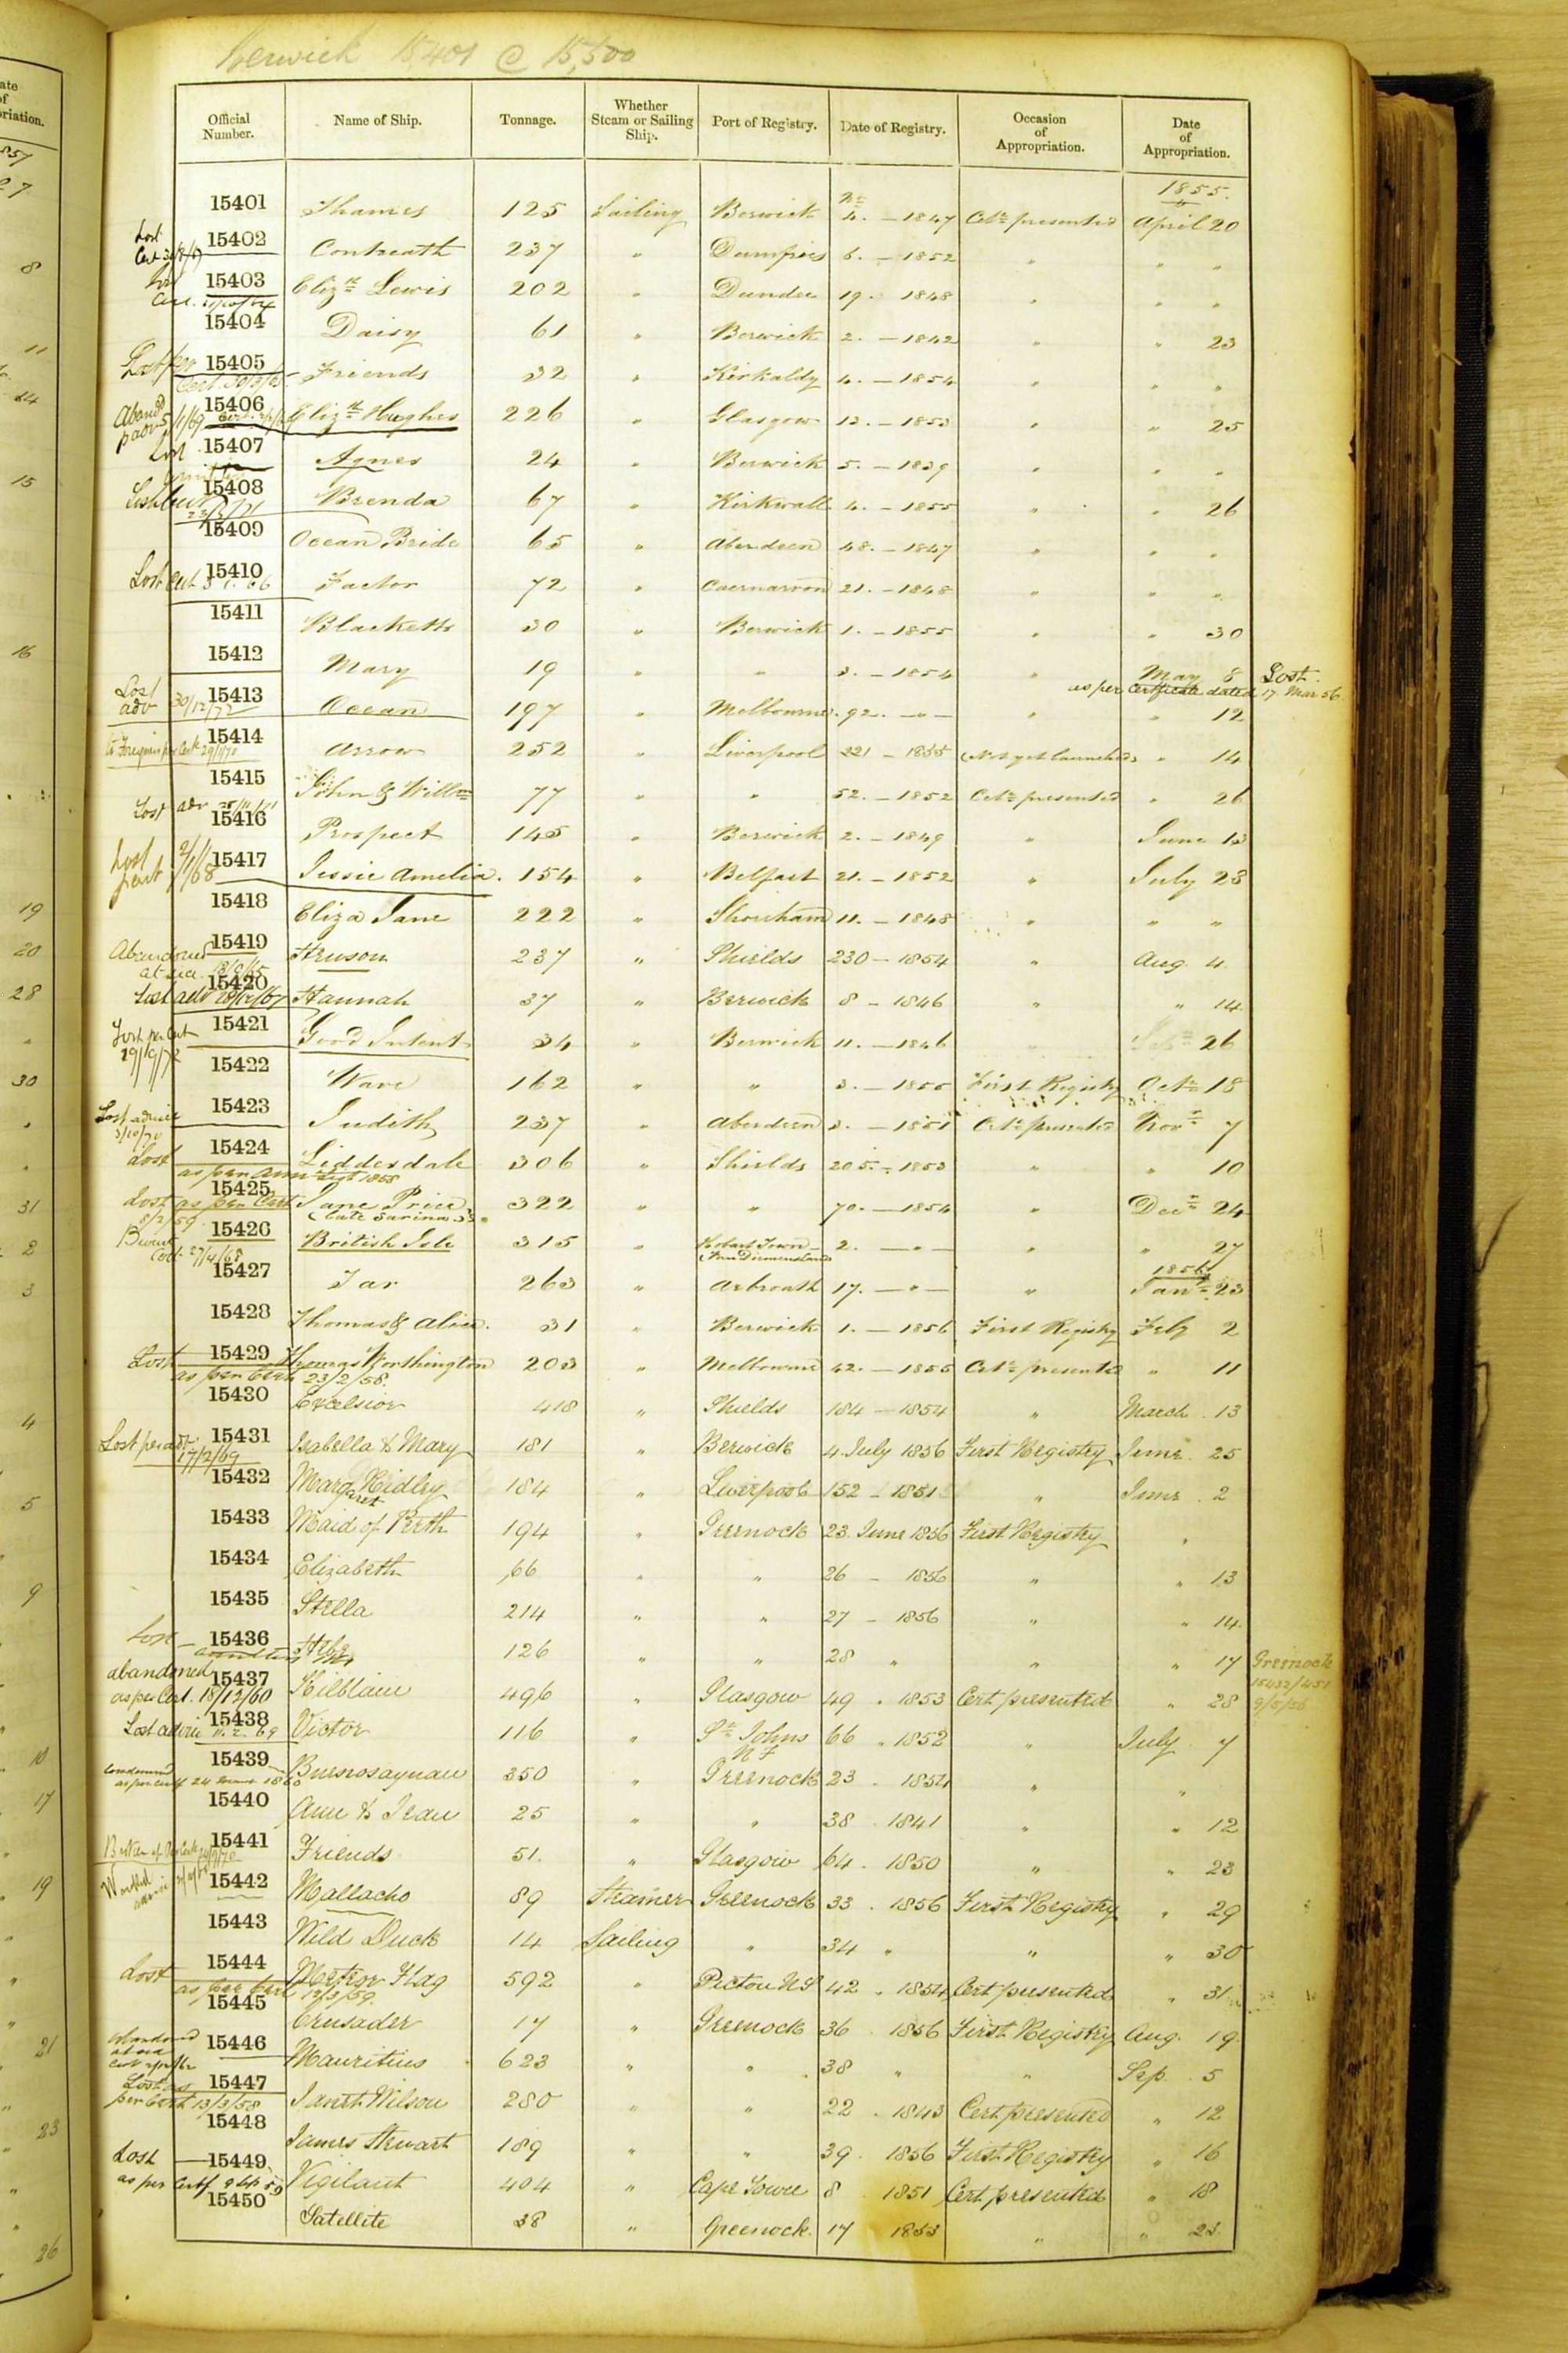 Berwick 15,401 @ 15,500
Official Number. Name of Ship. Tonnage. Whether Steam or Sailing Ship. Port of Registry. Date of Registry. Occasion of Appropriation. Date of Appropriation.
1855.
15401 Thames 125 Sailing Berwick No 4. — 1847 Certe presented April 20
Lost Cert
15402 Contreath 237 " Dumfries 6. — 1852 " " "
15403 Elizth Lewis 202 " Dundee 19. 1848 " " "
15404 Daisy 61 " Berwick 2. — 1842 " " 23
Lost per Cert.
15405 Friends 32 " Kirkaldy 4. — 1854 " " "
15406 Elizth Hughes 226 " Glasgow 13. — 1853 " " 25
Lost
15407 Agnes 24 " Berwick 5. — 1839 " " "
15408 Brenda 67 " Kirkwall 4. — 1855 " " 26
15409 Ocean Bride 65 " Aberdeen 48. — 1847 " " "
Lost Cert
15410 Factor 72 " Caernarvon 21. — 1848 " " "
15411 Blackett 30 " Berwick 1. — 1855 " " 30
15412 Mary 19 " " 3. — 1854 " May 8 Lost.
as per Certificate dated 17. Mar 56
Lost adv 30/12/72
15413 Ocean 197 " Melbourne 92. — " — " " 12
15414 Arrow 252 " Liverpool 221 — 1855 (Not yet launched) " 14
15415 John & Willm 77 " " 52. — 1852 Certe presented " 26
Lost adv
15416 Prospect 145 " Berwick 2. — 1849 " June 13
Lost
15417 Jessie Amelia. 154 " Belfast 21. — 1852 " July 23
15418 Eliza Jane 222 " Shoreham 11. — 1848 " " "
Abandoned at sea.
15419 Hewson 237 " Shields 230 — 1854 " Aug. 4
Lost adv
15420 Hannah 37 " Berwick 8 — 1846 " " 14
Lost per Cert 29/9/72
15421 Good Intent 34 " Berwick 11. — 1846 26
15422 Wave 162 " " 3. — 1855 First Registry Octr 18
Lost advice 3/10/70
15423 Judith 237 " Aberdeen 3. — 1851 Certe presented Novr 7
Lost as per
15424 Liddesdale 306 " Shields 205. — 1853 " " 10
Lost as per Cert 8/2/59.
15425 Jane Price 322 " " 70. — 1854 " Decr 24
Burnt Cert. 27/4/68
15426 British Isle 315 " Hobart Town Van Diemens Land 2. — " — " " 27
1856
15427 Jar 263 " Arbroath 17. — " — " Jany 23
15428 Thomas & Alice. 31 " Berwick 1. — 1856 First Registry Feby 2
Lost as per Cert 23/2/58.
15429 Thomas Worthington 203 " Melbourne 42. — 1855 Certe presented " 11
15430 Excelsior 418 " Shields 184 — 1854 " March 13
Lost per adv. 17/2/69
15431 Isabella & Mary 181 " Berwick 4 July 1856 First Registry June 25
15432 Margaret Ridley 184 " Liverpool 152 — 1851 " June 2
15433 Maid of Perth 194 " Greenock 23. June 1856 First Registry "
15434 Elizabeth 66 " " 26 — 1856 " " 13
15435 Stella 214 " " 27 — 1856 " " 14
Lost —
15436 Hebe 126 " " 28 " " " 17 Greenock
15432/451
9/5/56
abandoned as per Cert. 18/12/60
15437 Kilblain 496 " Glasgow 49 " 1853 Cert presented " 28
Lost advice 11. 2. 69
15438 Victor 116 " St Johns N F 66 " 1852 " July 7
Condemned as per cert 24
15439 Buenosayrean 350 " Greenock 23 . 1854 " "
15440 Ann & Jean 25 " " 38 . 1841 " " 12
15441 Friends 51. " Glasgow 64 . 1850 " " 23
15442 Mallacho 89 Steamer Greenock 33 . 1856 First Registry " 29
15443 Wild Duck 14 Sailing " 34 " " " 30
Lost as per Cert 12/3/59.
15444 Meteor Flag 592 " Pictou N S 42 . 1854 Cert presented " 31
15445 Crusader 17 " Greenock 36 . 1856 First Registry Aug. 19
abandoned at sea
15446 Mauritius 623 " " 38 " " Sep. 5
Lost as per Cert 13/3/58
15447 Janet Wilson 280 " " 22 . 1843 Cert presented " 12
15448 James Stewart 189 " " 39. 1856 First Registry " 16
Lost as per Certf
15449 Vigilant 404 " Cape Town 8 . 1851 Cert presented " 18
15450 Satellite 38 " Greenock. 17 1853 " " 23